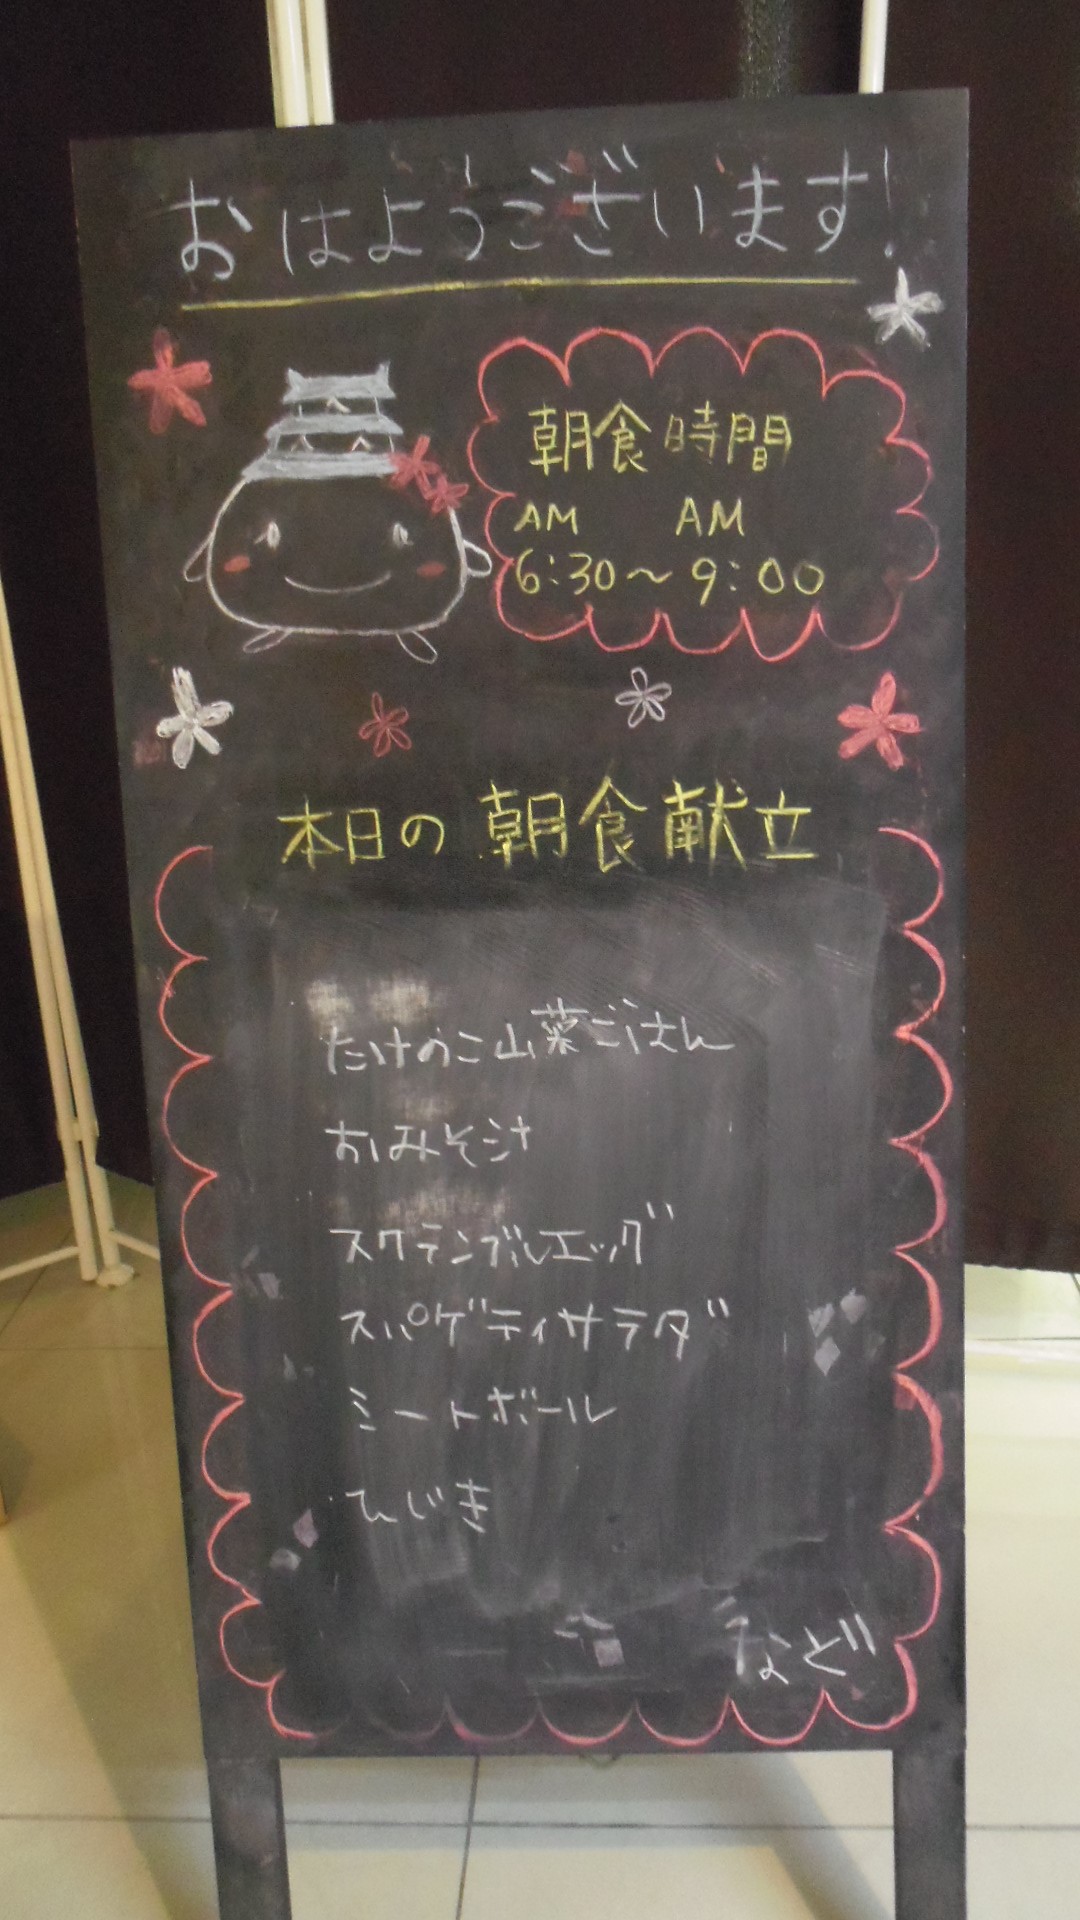 おはようございます!
朝食時間
AM AM
6:30～9:00
本日の朝食献立
たけのこ山菜ごはん
おみそ汁
スクランブルエッグ
スパゲティサラダ
ミートボール
ひじき
など